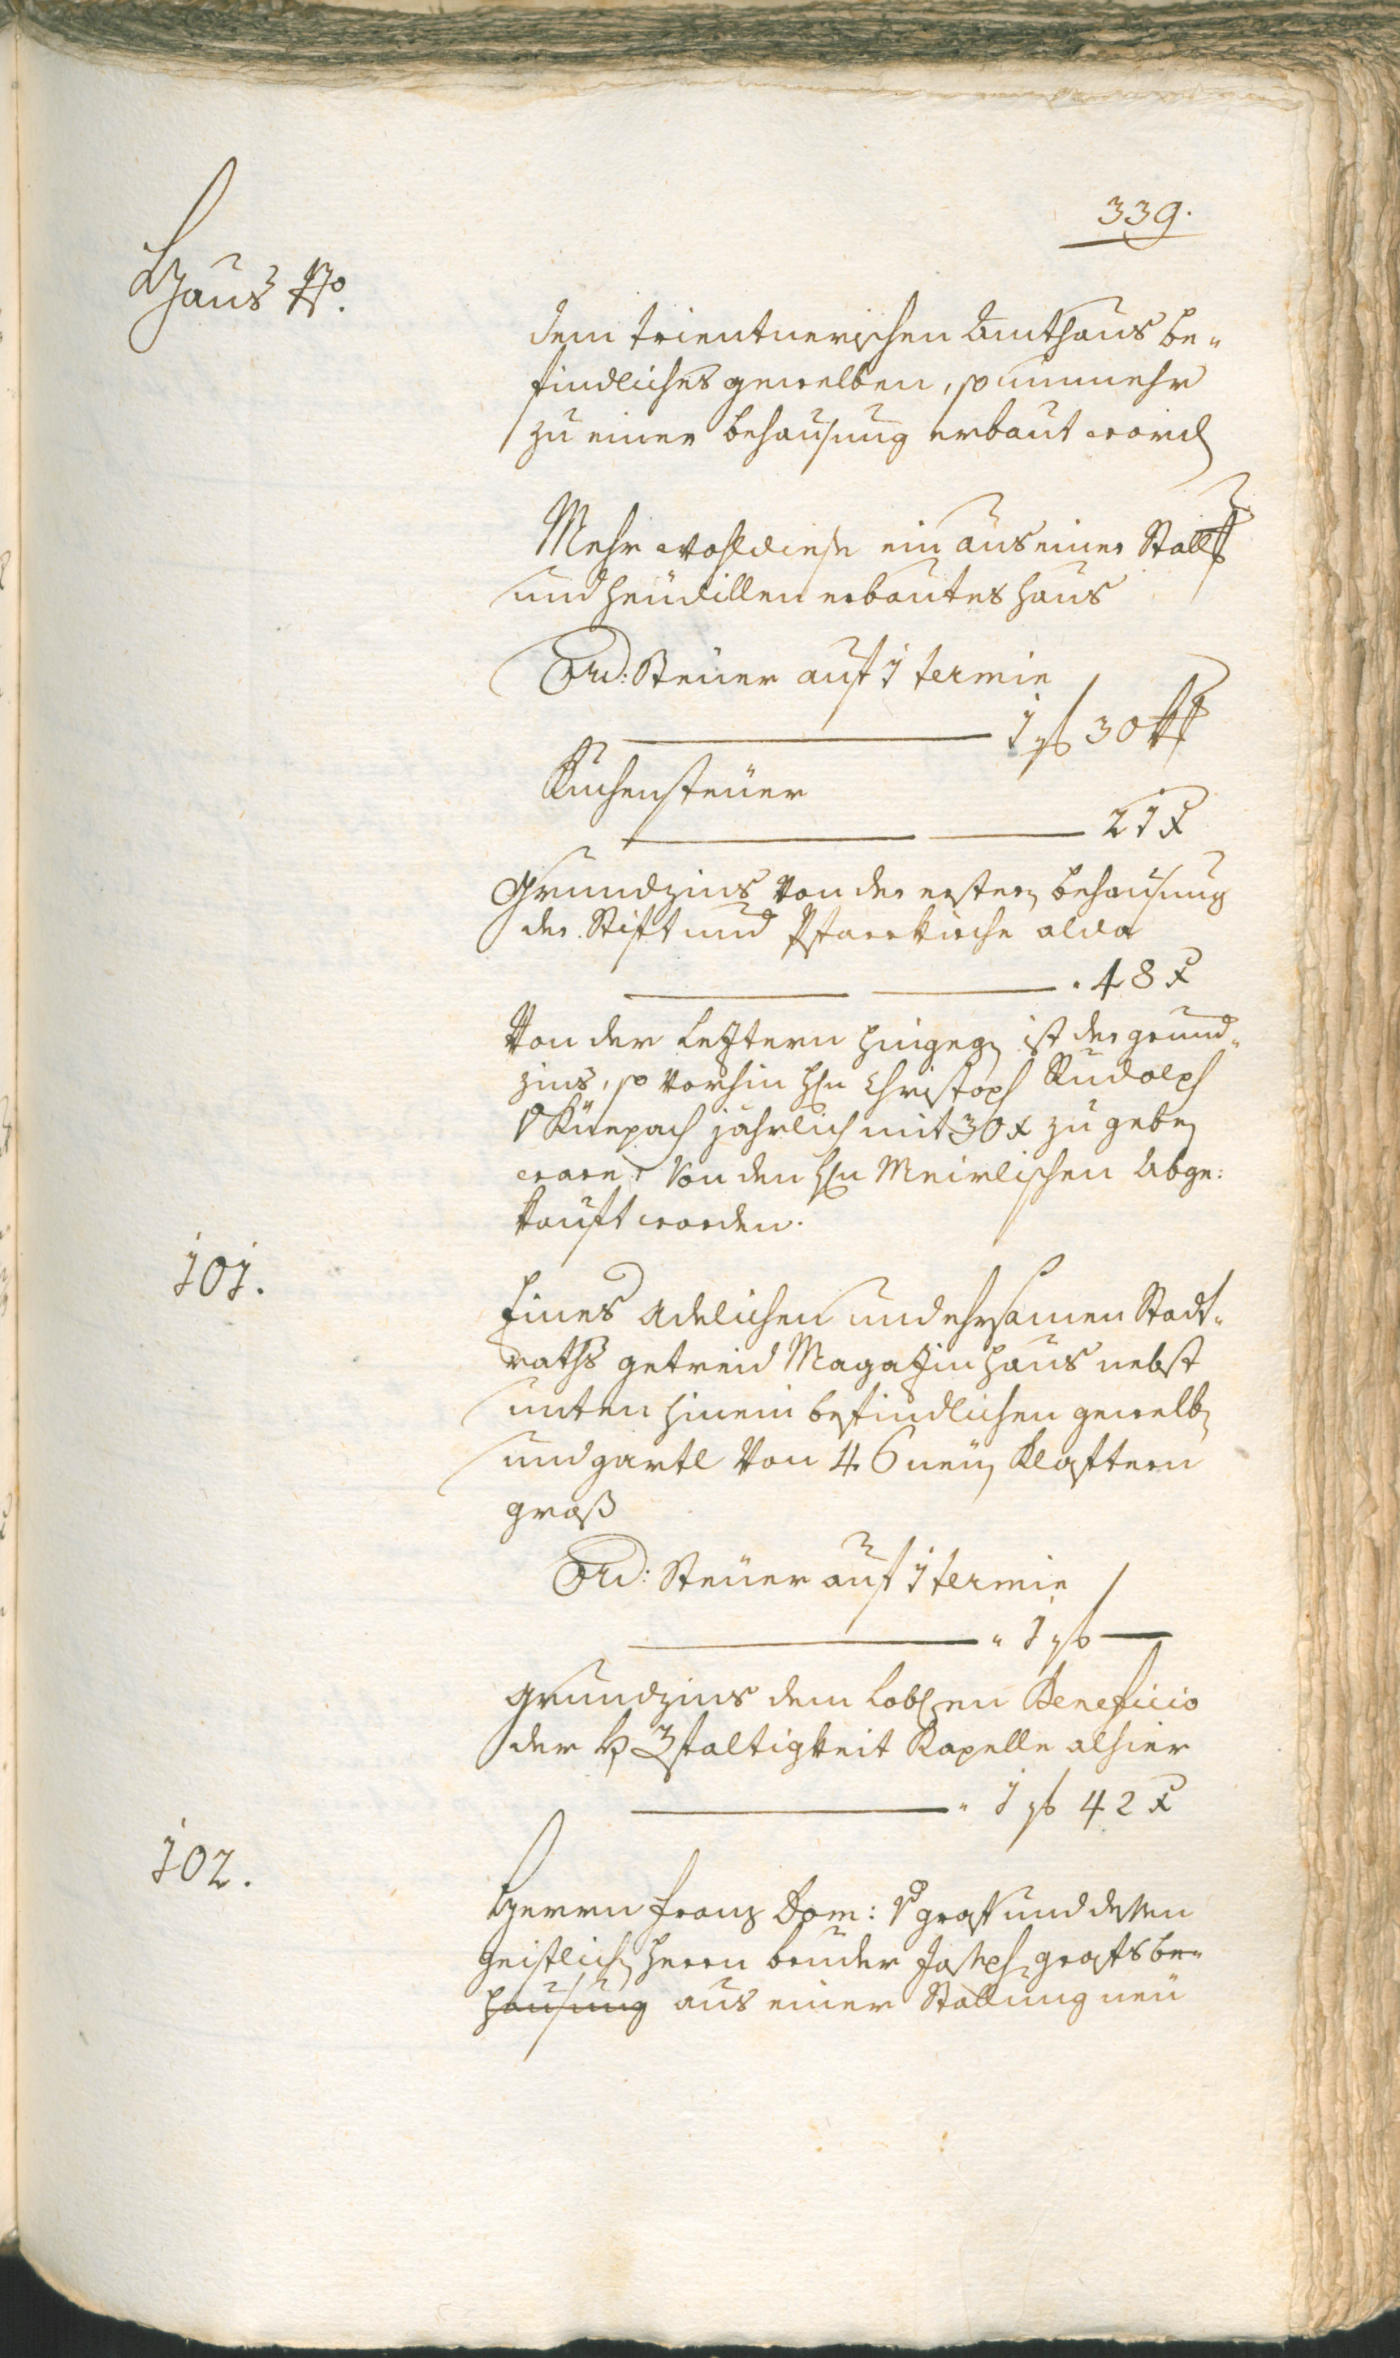 339.
Haus No.
dem trientnerischen Amthaus be-
findliches gewelben, so nunmehr
zu einer behausung erbaut word
Mehr wohldiese ein aus einer Stall
und heudillen erbautes haus
Ord: Steuer auf 1 termin
1 f 30
Kuchensteuer
21 x
Grundzins von der erstern behausung
der Stift und Pfarrkirche alda
48 x
Von der leztern hingegen ist der grund-
zins, so vorhin Hln Christoph Rudolph
V Küepach jährlich mit 30 x zu geben
ware, von den Hln Meirlischen Abge:
kauft worden.
101.
Eines Adelichen und ehrsamen Stadt-
raths getreid Magazin haus nebst
unten hinein befindlichen gewelben
und gartl von 46 neün Klaftern
groß
Ord: Steüer auf 1 termin
1 f
Grundzins dem Lobl en Beneficio
der H 3faltigkeit Kapelle alhier
1 f 42 x
102.
Herrn Franz Dom: V graff und dessen
geistlichen Herrn bruder Joseph grafs be-
hausung aus einer Stallung neü